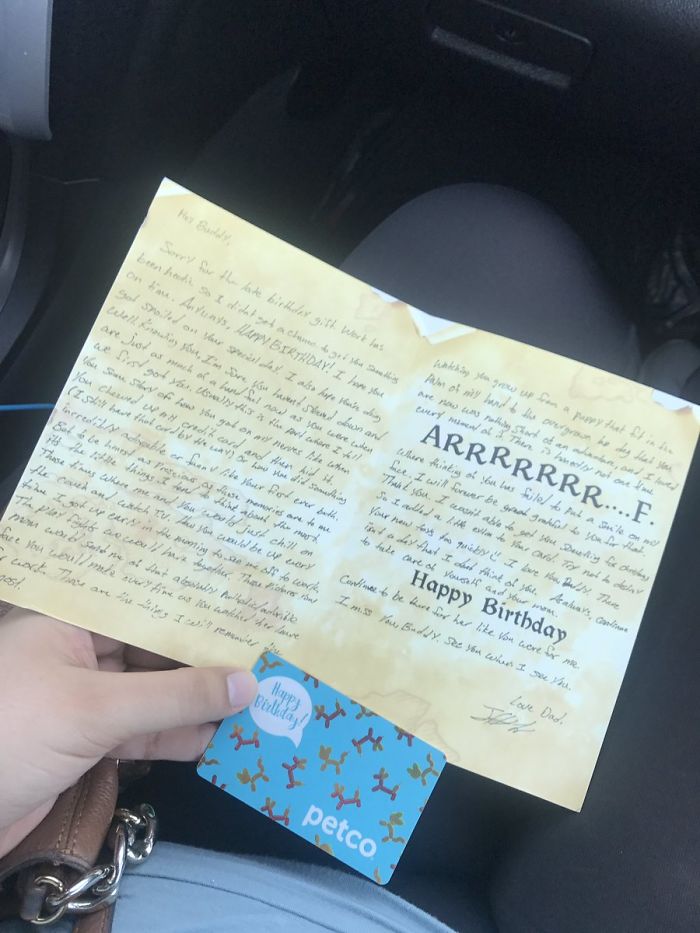 Hey Buddy,
Sorry for the late birthday gift. Work has
been hectic so I didnt get a chance to get you something
on time. Anyways, HAPPY BIRTHDAY! I hope you
got spoiled on your special day. I also hope you're okay
Well, knowing you, I'm sure you havent slowed down and
are just as much of a handful now as you were when
we first got you. Usually this is the part where I tell
you some story of how you got on my nerves like when
you chewed up my credit card and then hid it.
(I still have that card by the way) or how you did something
incredibly adorable or funny like your first ever bath.
But to be honest as precious as those memories are to me
its the little things I tend to think about the most.
Those times when me and you would just chill on
the couch and watch TV. How you would be up every
time I got up early in the morning to see me off to work.
The play fights we would have together. Those pictures how
mom would send me of that absolutely adorable
face you would make every time as you watched me leave
for work. Those are the things I will remember the
most.
Watching you grow up from a puppy that fit in the
palm of my hand to the overgrown, big dog that you
are now was nothing short of an adventure, and I loved
every moment of it. There is honestly not one time
ARRRRRRR....F.
Where thinking of you has failed to put a smile on my
face. I will forever be grateful to you for that.
Thank you. I wasn't able to get you something for christmas
so I added a little extra to your card. Try not to destroy
your new toys too quickly! I love you Buddy. There
isnt a day that I dont think of you. As always, continue
to take care of yourself and your mom.
Happy Birthday
Continue to be there for her like you were for me.
I miss you, Buddy. See you when I see you.
Love Dad.
Happy
Birthday!
petco